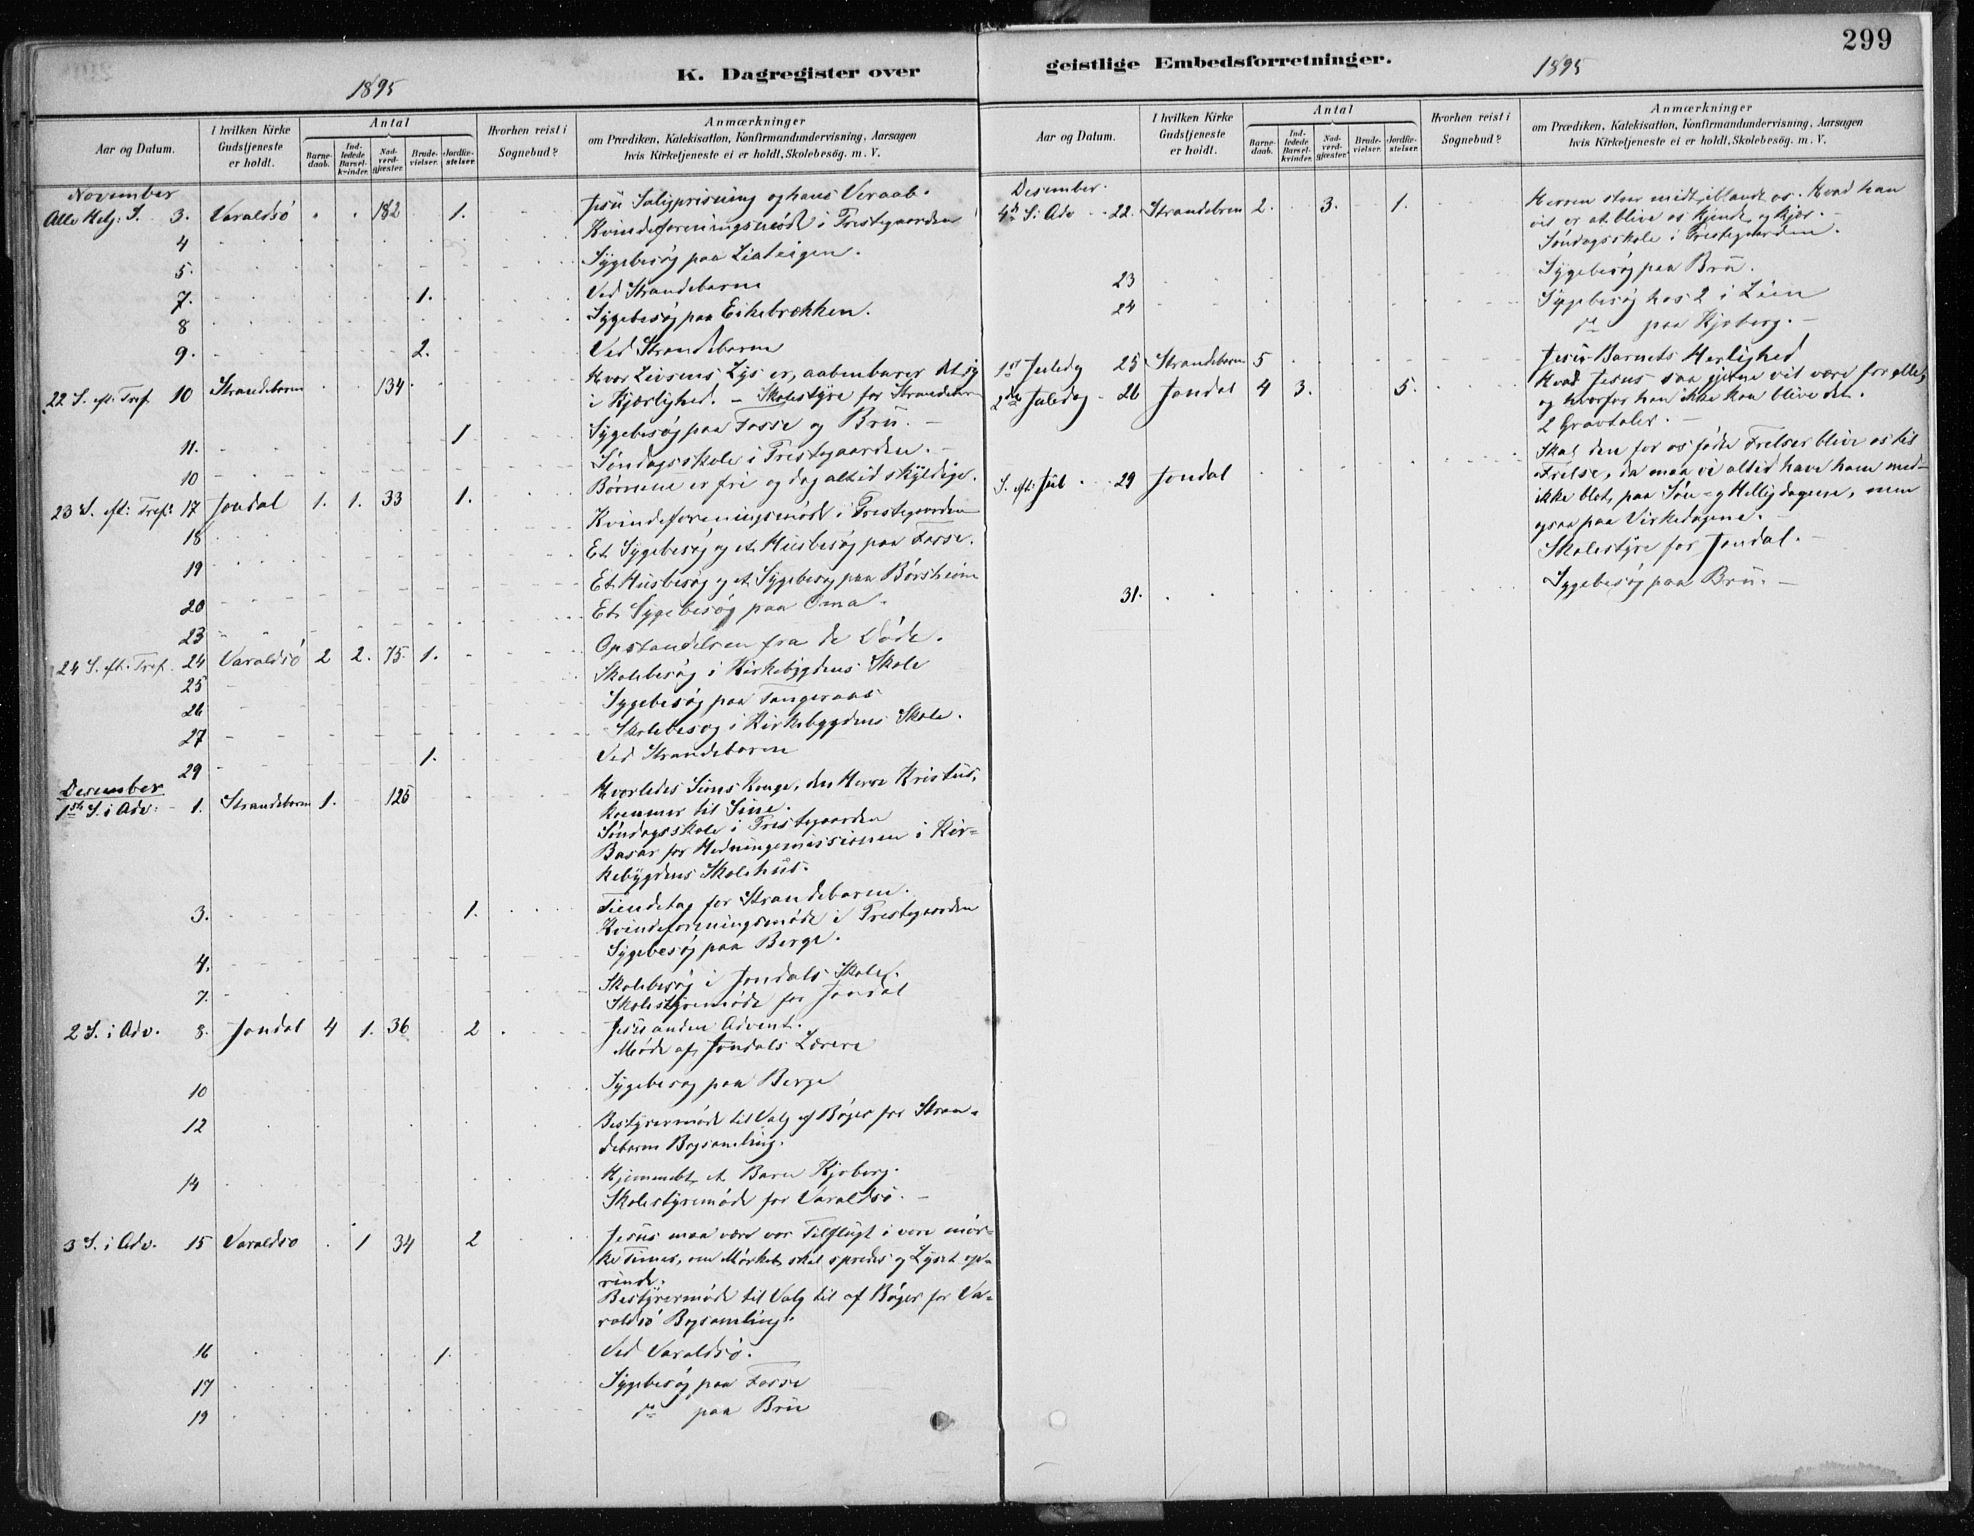 299
K. Dagregister over geistlige Embedsforretninger.
1895
Aar og Datum. I hvilken Kirke Gudstjeneste er holdt. Antal Barnedaab. Indledede Barselkvinder. Nadverdgjester. Brudevielser. Jordfæstelser. Hvorhen reist i Sognebud? Anmærkninger om Prædiken, Katekisation, Konfirmandundervisning, Aarsagen hvis Kirketjeneste ei er holdt, Skolebesøg. m. V.
November
Alle Helg: S. 3. Varaldsö 182 1. Jesu Saligprisning og hans Veraab.
Kvindeforeningsmöde i Prestegaarden
4 Sygebesøg paa Liateigen.
5.
7. 1. Ved Strandebarm
8 Sygebesøg paa Eikebrækken.
9. 2. Ved Strandebarm
22 S. eft. Tref. 10 Strandebarm 134 Hvor Livsens Lys er, aabenbarer det sig
i Kjærlighed. – Skolestyre for Strandebarm
11. 1 Sygebesøg paa Fosse og Bru. –
10 Søndagsskole i Prestegaarden. –
23 S. eft: Tref: 17 Jondal 1. 1. 33 1. Børnene er fri og dog altid skyldige.
18 Kvindeforeningsmøde i Prestegaarden
19 Et Sygebesøg og et Husbesøg paa Fosse.
20 Et Husbesøg og et Sygebesøg paa Børsheim
23 Et Sygebesøg paa Oma.
24 S. eft. Tref. 24 Varaldsö 2 2. 75. 1. Opstandelsen fra de Døde.
25 Skolebesøg i Kirkebygdens Skole
26 Sygebesøg paa Tangeraas
27 Skolebesøg i Kirkebygdens Skole.
29 1. Ved Strandebarm
Desember
1ste S. i Adv: 1. Strandebarm 1. 126 Hvorledes Sions Konge, den Herre Kristus,
kommer til Sine.
Søndagsskole i Prestegaarden
Basar for Hedningemissionen i Kir-
kebygdens Skolehus.
3. 1. Tiendetag for Strandebarm.
Kvindeforeningsmøde i Prestegaarden
4. Sygebesøg paa Berge.
7. Skolebesøg i Jondals Skole.
Skolestyremøde for Jondal
2 S. i Adv. 8. Jondal 4 1. 36 2 Jesu anden Advent.
Møde af Jondals Lærere
10 Sygebesøg paa Berge
12 Bestyrermøde til Valg af Bøger for Stran-
debarm Bogsamling.
14 Hjemmebt. et Barn Kjoberg.
Skolestyremøde for Varaldsö. –
3 S. i Adv. 15 Varaldsö 1 34 2 Jesus maa være vor Tilflugt i vore mør-
ke Timer, om Mørket skal spredes og Lyset op-
rinde.
Bestyrermøde til Valg til af Bøger for Va-
raldsö Bogsamling.
16 1. Ved Varaldsö.
17 Sygebesøg paa Fosse
19 do paa Bru
1895
Aar og Datum. I hvilken Kirke Gudstjeneste er holdt. Antal Barnedaab. Indledede Barselkvinder. Nadverdgjester. Brudevielser. Jordfæstelser. Hvorhen reist i Sognebud? Anmærkninger om Prædiken, Katekisation, Konfirmandundervisning, Aarsagen hvis Kirketjeneste ei er holdt, Skolebesøg. m. V.
Desember.
4de S. i Adv 22. Strandebrm 2. 3. 1. Herren staar midt iblandt os. Hvad han
vil er at blive os kjendt og kjær. –
Søndagsskole i Prestegaarden.
23 Sygebesøg paa Bru.
24 Sygebesøg hos 2 i Lien
do paa Kjoberg. –
1ste Juledg 25 Strandebarm 5 Jesu-Barnets Herlighed
2den Juledag 26 Jondal 4 3. 5. Hvad Jesus saa gjerne vil være for alle,
og hvorfor han ikke kan blive det.
2 Gravtaler. –
S. eft. Jul 29 Jondal Skal den for os fødte Frelser blive os til
Frelse, da maa vi altid have ham med –
ikke blot paa Søn- og Helligdagene, men
ogsaa paa Virkedagene. –
Skolestyre for Jondal. –
31. Sygebesøg paa Bru. –